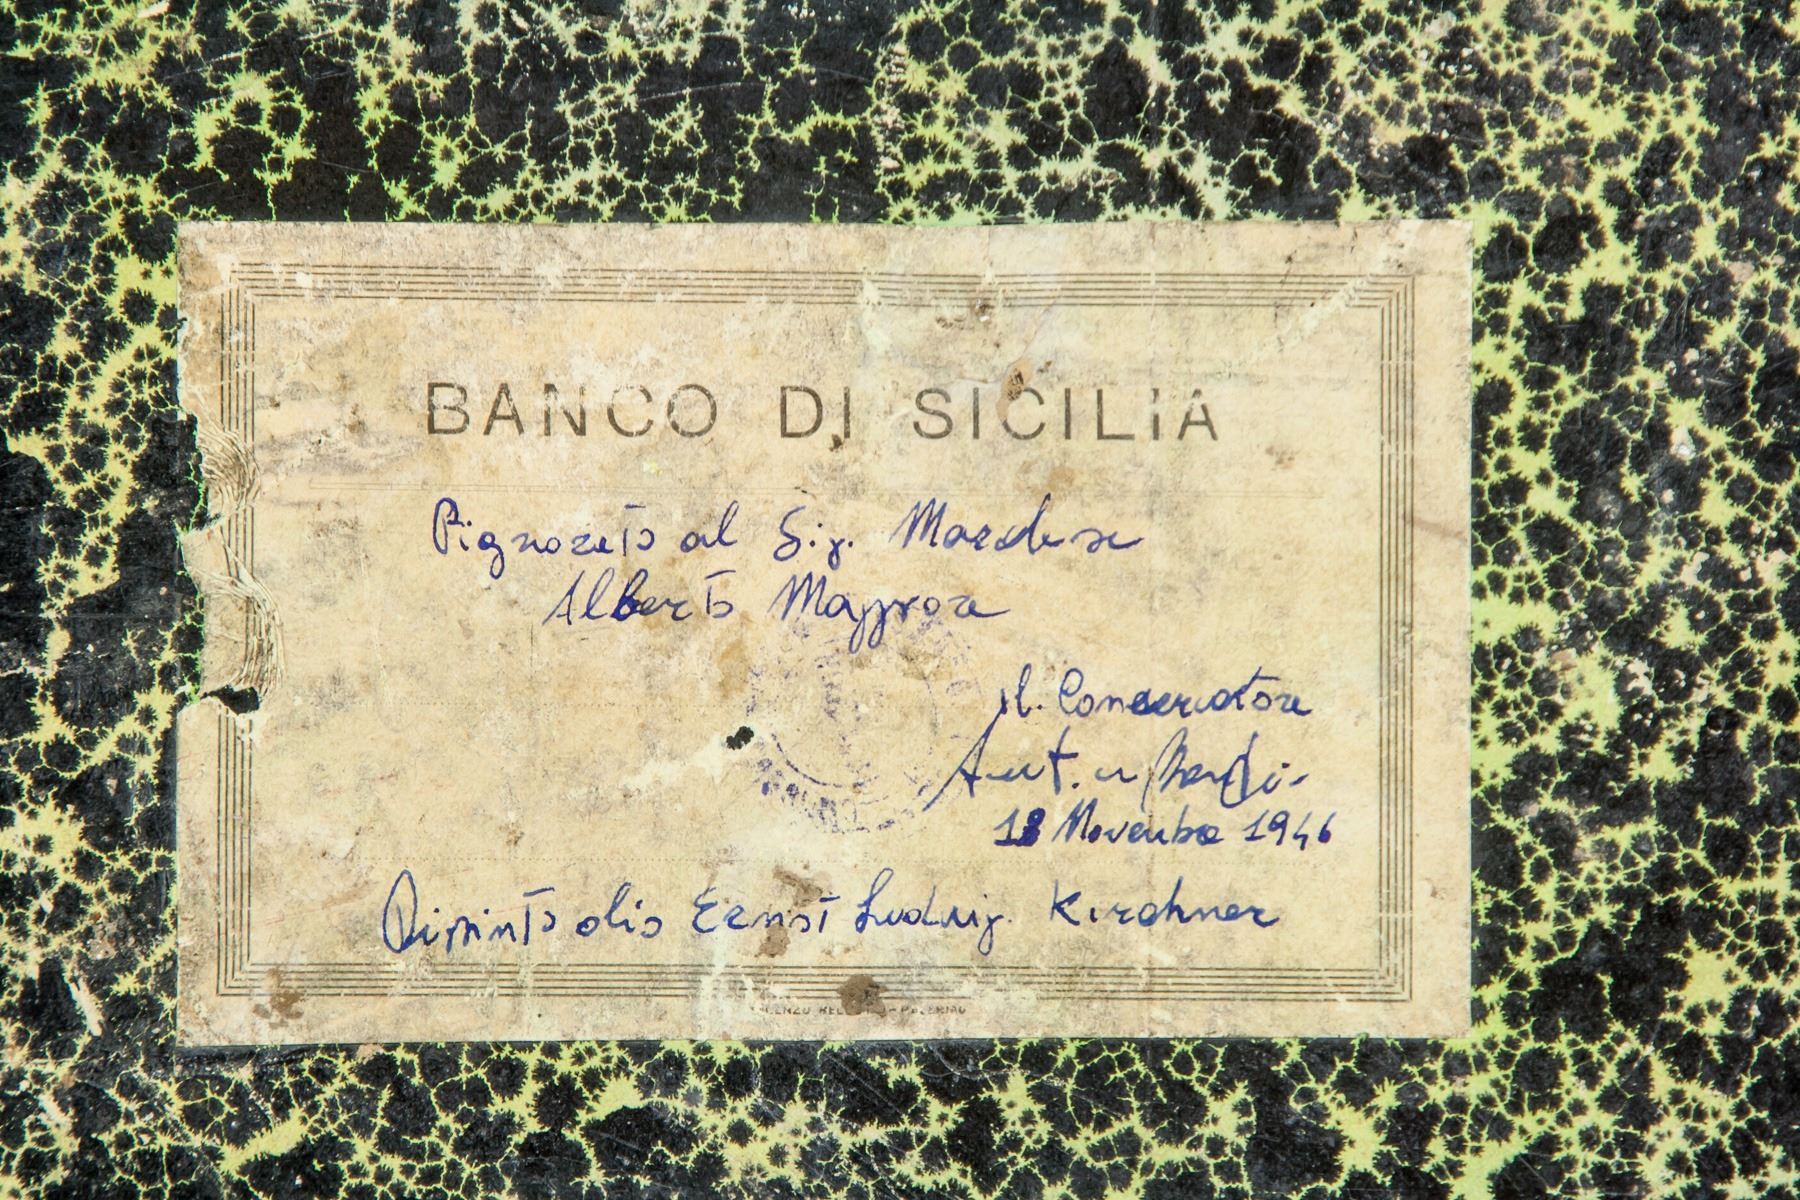 BANCO DI SICILIA
Pignorato al Sig. Marchese
Alberto
Il Conservatore
18 Novembre 1946
Dipinto olio Ernst Ludwig Kirchner